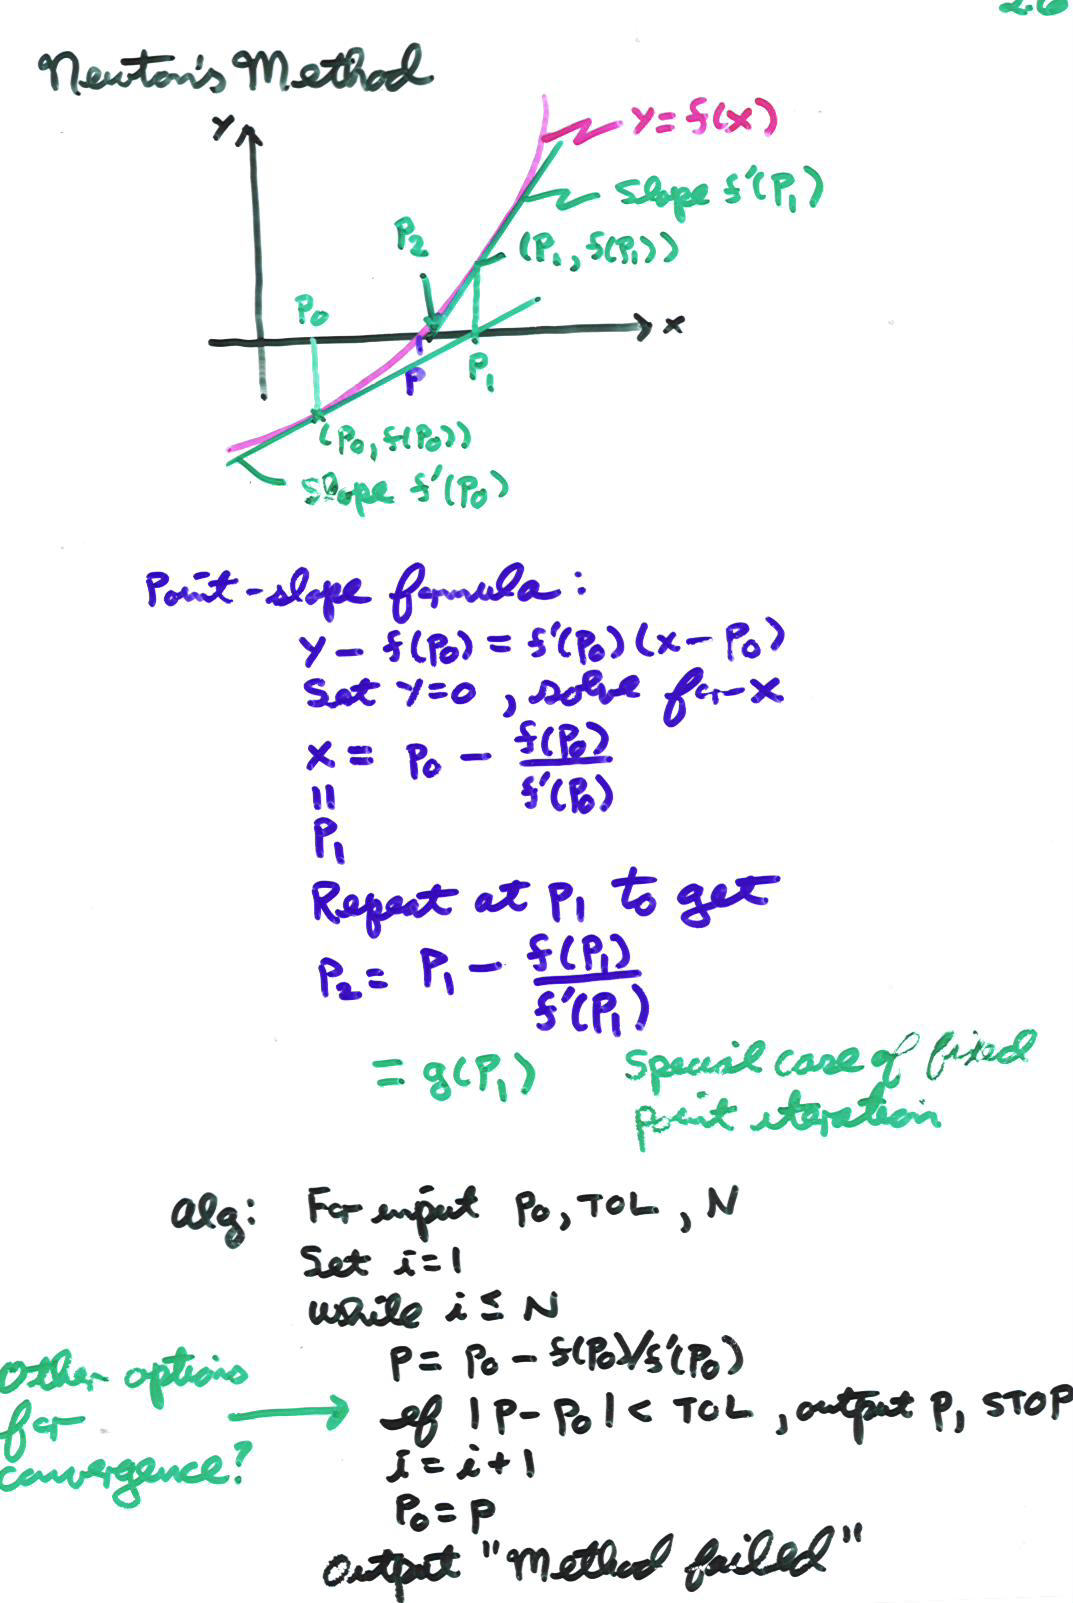 2.6
Newton's Method
y
y = f(x)
slope f'(P₁)
P₂
(P₁, f(P₁))
P₀
x
P
P₁
(P₀, f(P₀))
slope f'(P₀)
Point-slope formula:
y - f(P₀) = f'(P₀)(x - P₀)
Set y=0, solve for x
x = P₀ - f(P₀)/f'(P₀)
=
P₁
Repeat at P₁ to get
P₂ = P₁ - f(P₁)/f'(P₁)
= g(P₁)
Special case of fixed
point iteration
alg: For input P₀, TOL, N
Set i=1
while i ≤ N
P = P₀ - f(P₀)/f'(P₀)
Other options
for
convergence?
if |P - P₀| < TOL, output P, STOP
i = i + 1
P₀ = P
Output "Method failed"